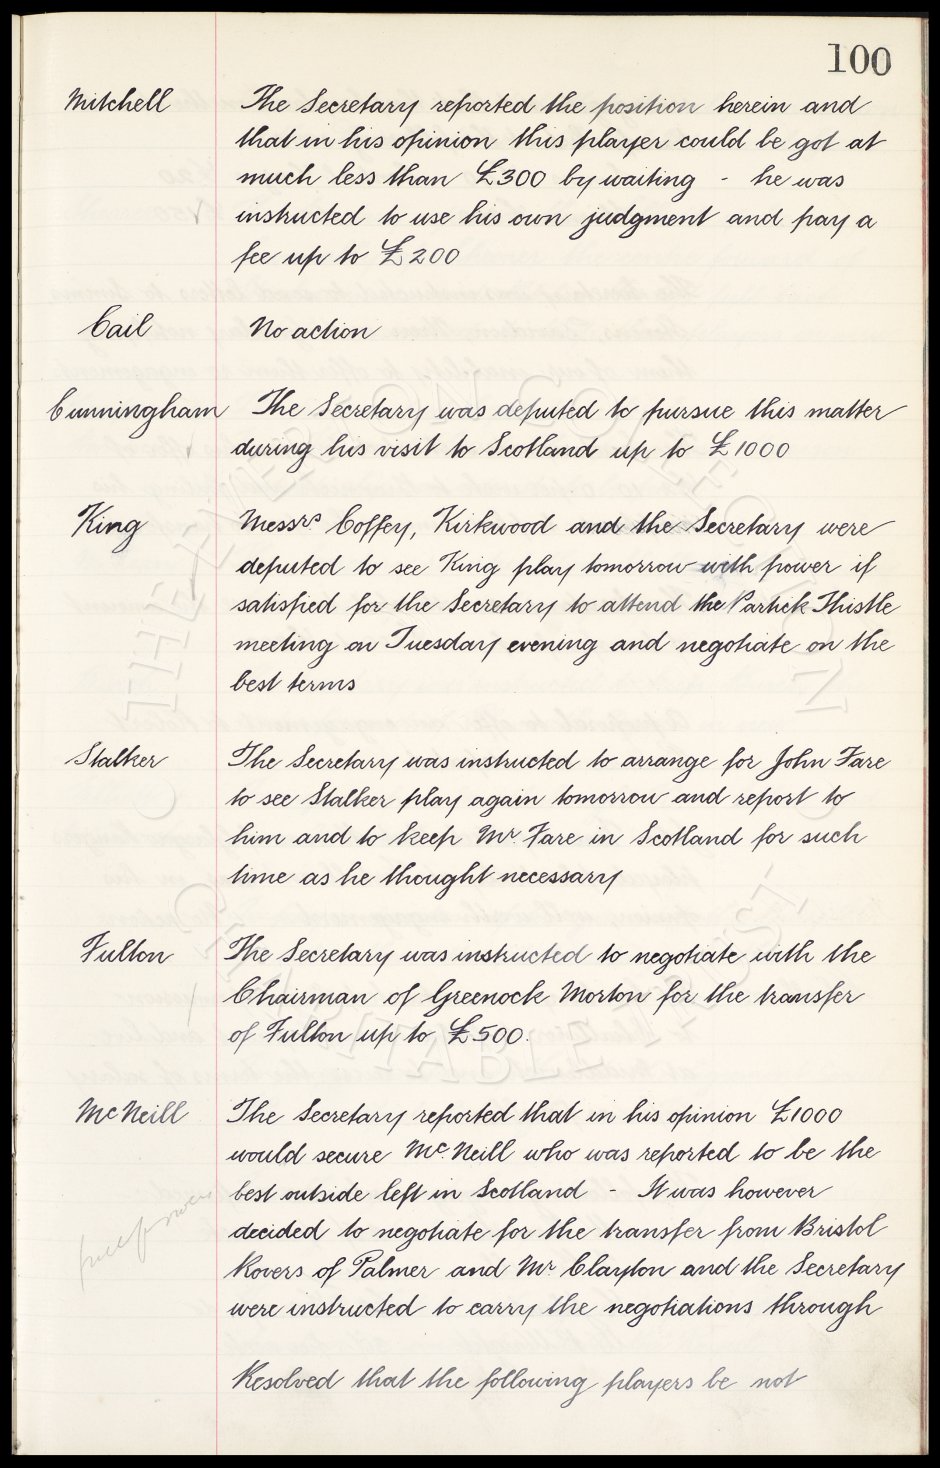 100
Mitchell The Secretary reported the position herein and
that in his opinion this player could be got at
much less than £300 by waiting - he was
instructed to use his own judgment and pay a
fee up to £200
Cail No action
Cunningham The Secretary was deputed to pursue this matter
during his visit to Scotland up to £1000
King Messrs Coffey, Kirkwood and the Secretary were
deputed to see King play tomorrow with power if
satisfied for the Secretary to attend the Partick Thistle
meeting on Tuesday evening and negotiate on the
best terms
Stalker The Secretary was instructed to arrange for John Fare
to see Stalker play again tomorrow and report to
him and to keep Mr. Fare in Scotland for such
time as he thought necessary
Fulton The Secretary was instructed to negotiate with the
Chairman of Greenock Morton for the transfer
of Fulton up to £500.
McNeill The Secretary reported that in his opinion £1000
would secure Mc.Neill who was reported to be the
best outside left in Scotland - It was however
decided to negotiate for the transfer from Bristol
Rovers of Palmer and Mr. Clayton and the Secretary
were instructed to carry the negotiations through
Resolved that the following players be not